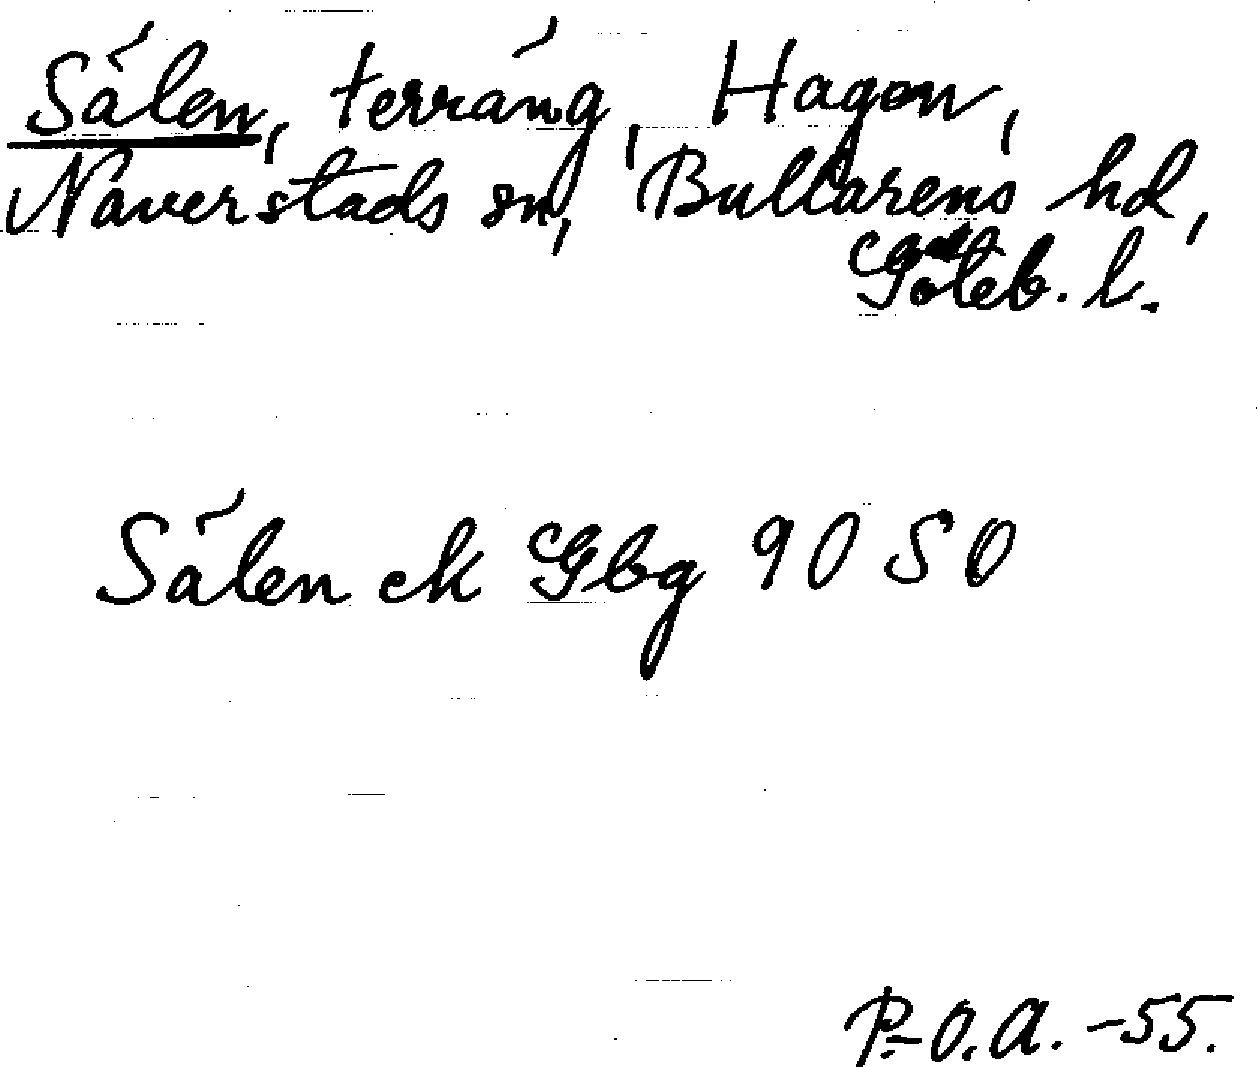 Sålen, terräng, Hagen,
Naverstads sn, Bullarens hd,
Göteb. l.
Sålen ek Gbg 90 SO
P.-O.A. -55.